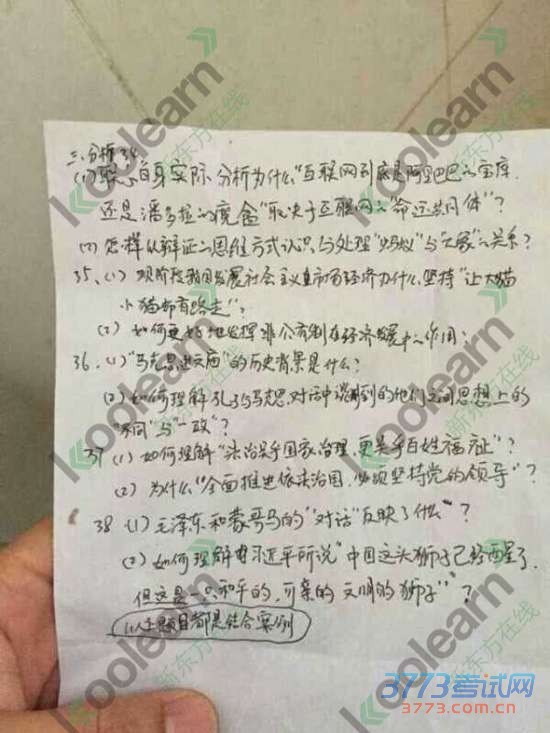 三、分析34
(1) 联系自身实际 分析为什么"互联网到底是阿里巴巴的宝库
还是潘多拉的魔盒"取决于互联网的"命运共同体"?
(2) 怎样从辩证的思维方式认识与处理"蚂蚁"与"大象"的关系?
35、(1) 现阶段我国发展社会主义市场经济为什么坚持"让大猫
小猫都有路走"?
(2) 如何更好地发挥非公有制在经济发展中的作用?
36、(1)"马克思进文庙"的历史背景是什么?
(2) 如何理解孔子与马克思对话中谈到的他们之间思想上的
"不同"与"一致"?
37 (1) 如何理解"法治关乎国家治理,更关乎百姓福祉"?
(2) 为什么"全面推进依法治国,必须坚持党的领导"?
38 (1) 毛泽东和蒙哥马的"对话"反映了什么?
(2) 如何理解习近平所说"中国这头狮子已经醒了
但这是一只和平的,可亲的 文明的狮子"?
以上题目都是结合案例
koolearn
新东方在线
3773考试网
3773.com.cn